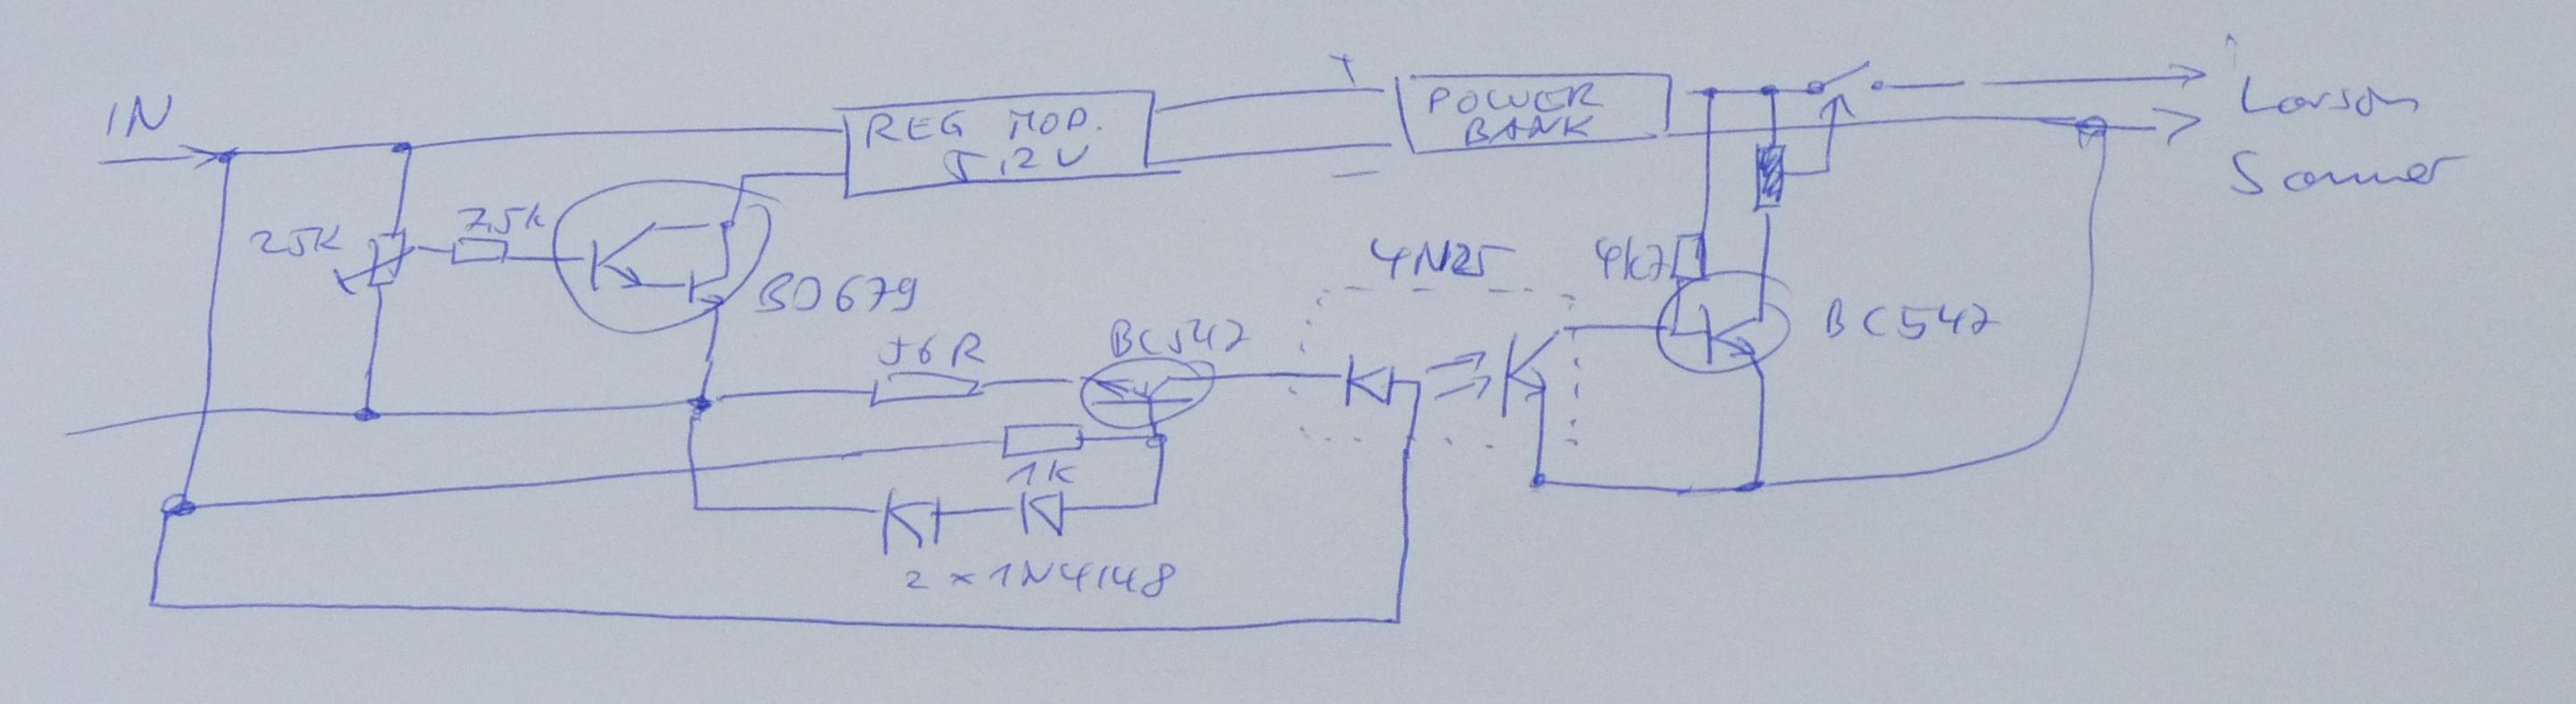 IN
REG MOD.
5,2V
+
-
POWER
BANK
Larson
Scanner
25K
7,5k
BD679
56R
BC547
4N25
4k7
BC547
1K
2 x 1N4148